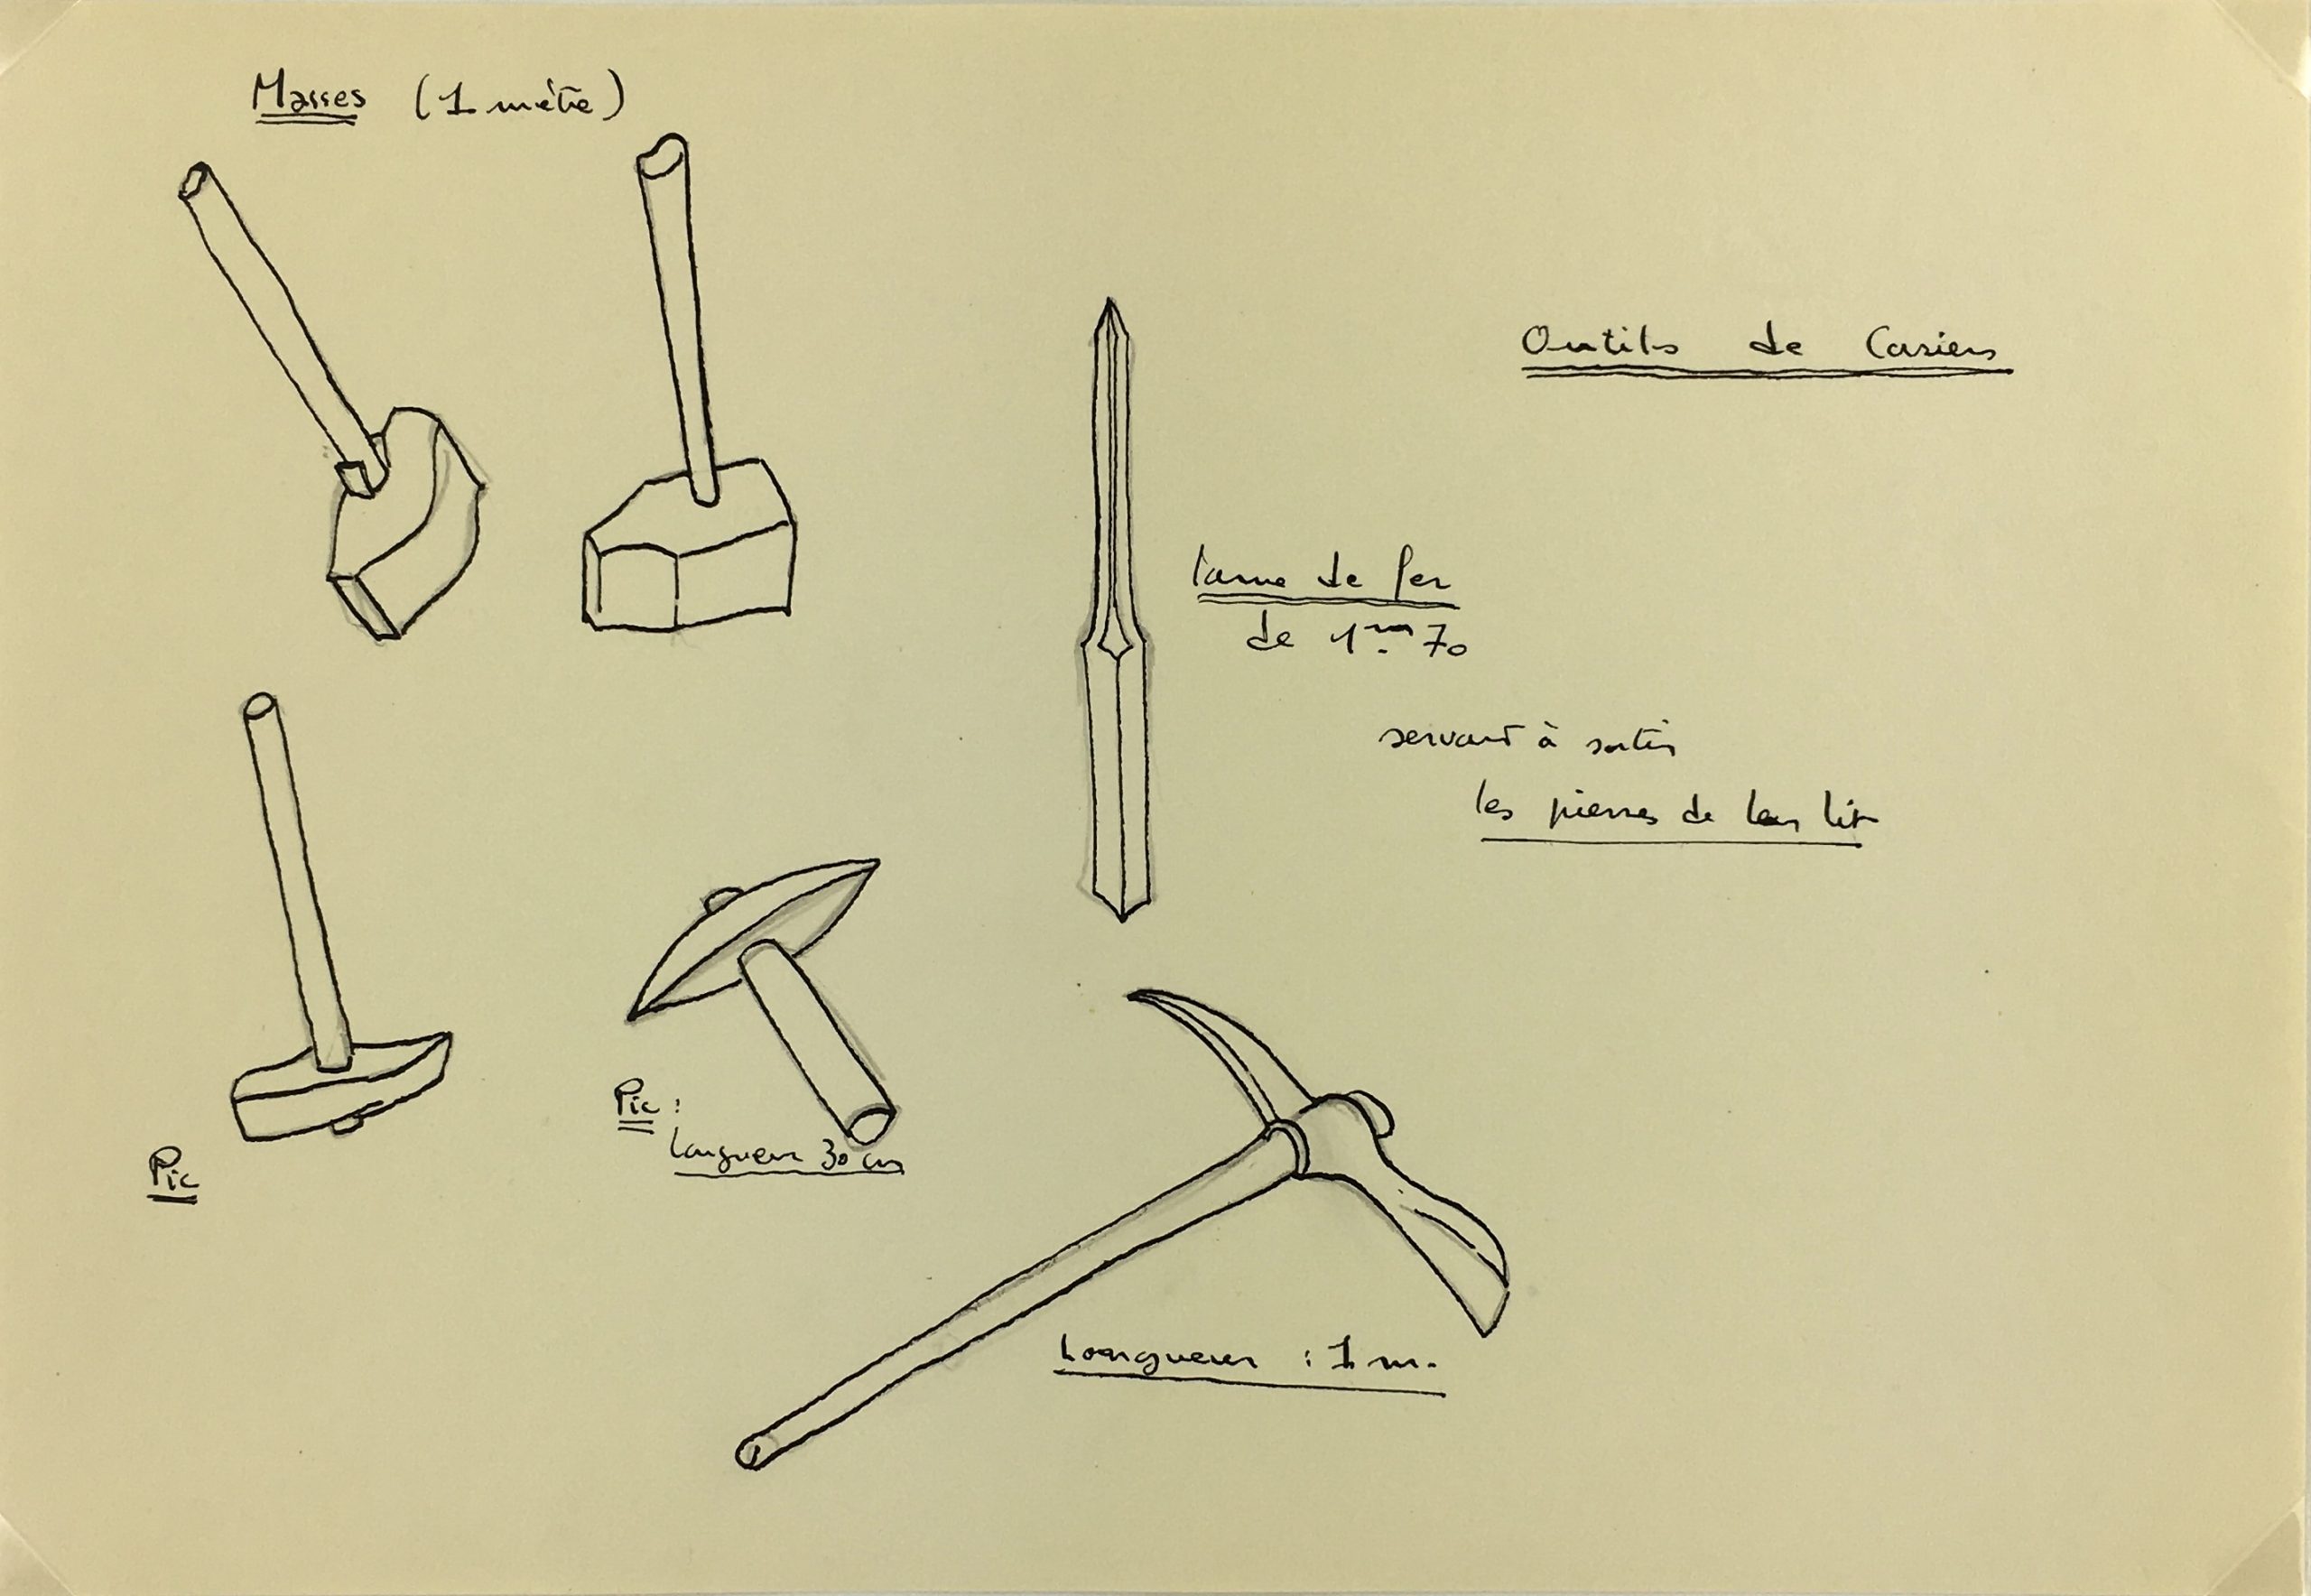 Masses (1 mètre)
Outils de Cariers
lame de fer
de 1m.70
servant à sortir
les pierres de leur lit
Pic :
Longueur 30 cm
Pic
Longueur : 1 m.